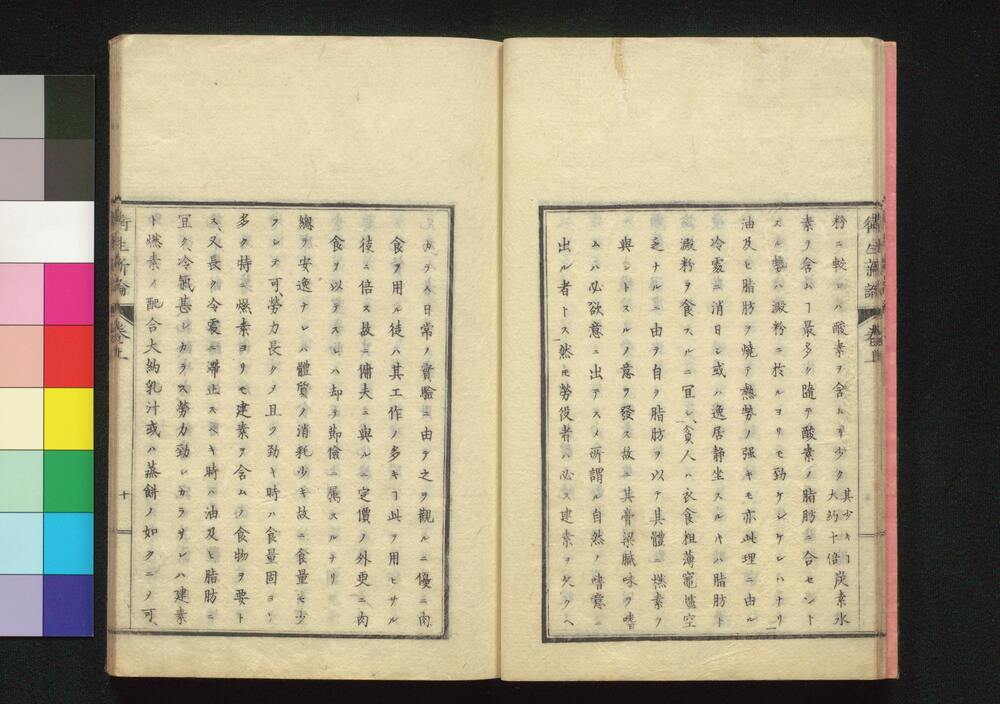 粉ニ較レハ酸素ヲ含ムヿ少ク其少キヿ大約十倍炭素水
素ヲ含ムヿ最多ク隨テ酸素ノ脂肪ニ合セント
スル勢ハ澱粉ニ於ルヨリモ勁ケレケレハナリ
油及ヒ脂肪ヲ燒テ熱勢ノ强キモ亦此理ニ由ル
冷處ニ消日シ或ハ逸居静坐スルキハ脂肪ト
澱粉ヲ食スルニ冝シ、貧人ハ衣食粗薄竈爐空
乏ナルニ由ラ自ラ脂肪ヲ以テ其體ニ燃素ヲ
與ントスルノ意ヲ發ス故ニ其膏梁膩味ヲ嗜
ムハ必欲意ニ出テスメ所謂ル自然ノ嗜意ニ
出ル者トス然ㇾ𪜈勞役者ハ必ス建素ヲ欠クヘ
カラス日常ノ實驗ニ由テ之ヲ觀ルニ優ニ肉
食ヲ用ル徒ハ其工作ノ多キヿ此ヲ用ヒサル
徒ニ倍ス故ニ傭夫ニ與ルニ定價ノ外更ニ肉
食ヲ以テスレハ却テ節儉ニ属スルナリ
總テ安逸ナレハ體質ノ消耗少キ故ニ食量モ少
フシテ可、勞力長クメ且ツ勁キ時ハ食量固ヨリ
多ク持ニ燃素ヨリモ建素ヲ含ムノ食物ヲ要ト
ス、又長ク冷處ニ滯止スヘキ時ハ油及ヒ脂肪ニ
冝ク、冷氣甚シカラス勞力勁シカラサレハ建素
ト燃素ノ配合大約乳汁或ハ蒸餅ノ如クニメ可、
衛生新論
卷之上
十